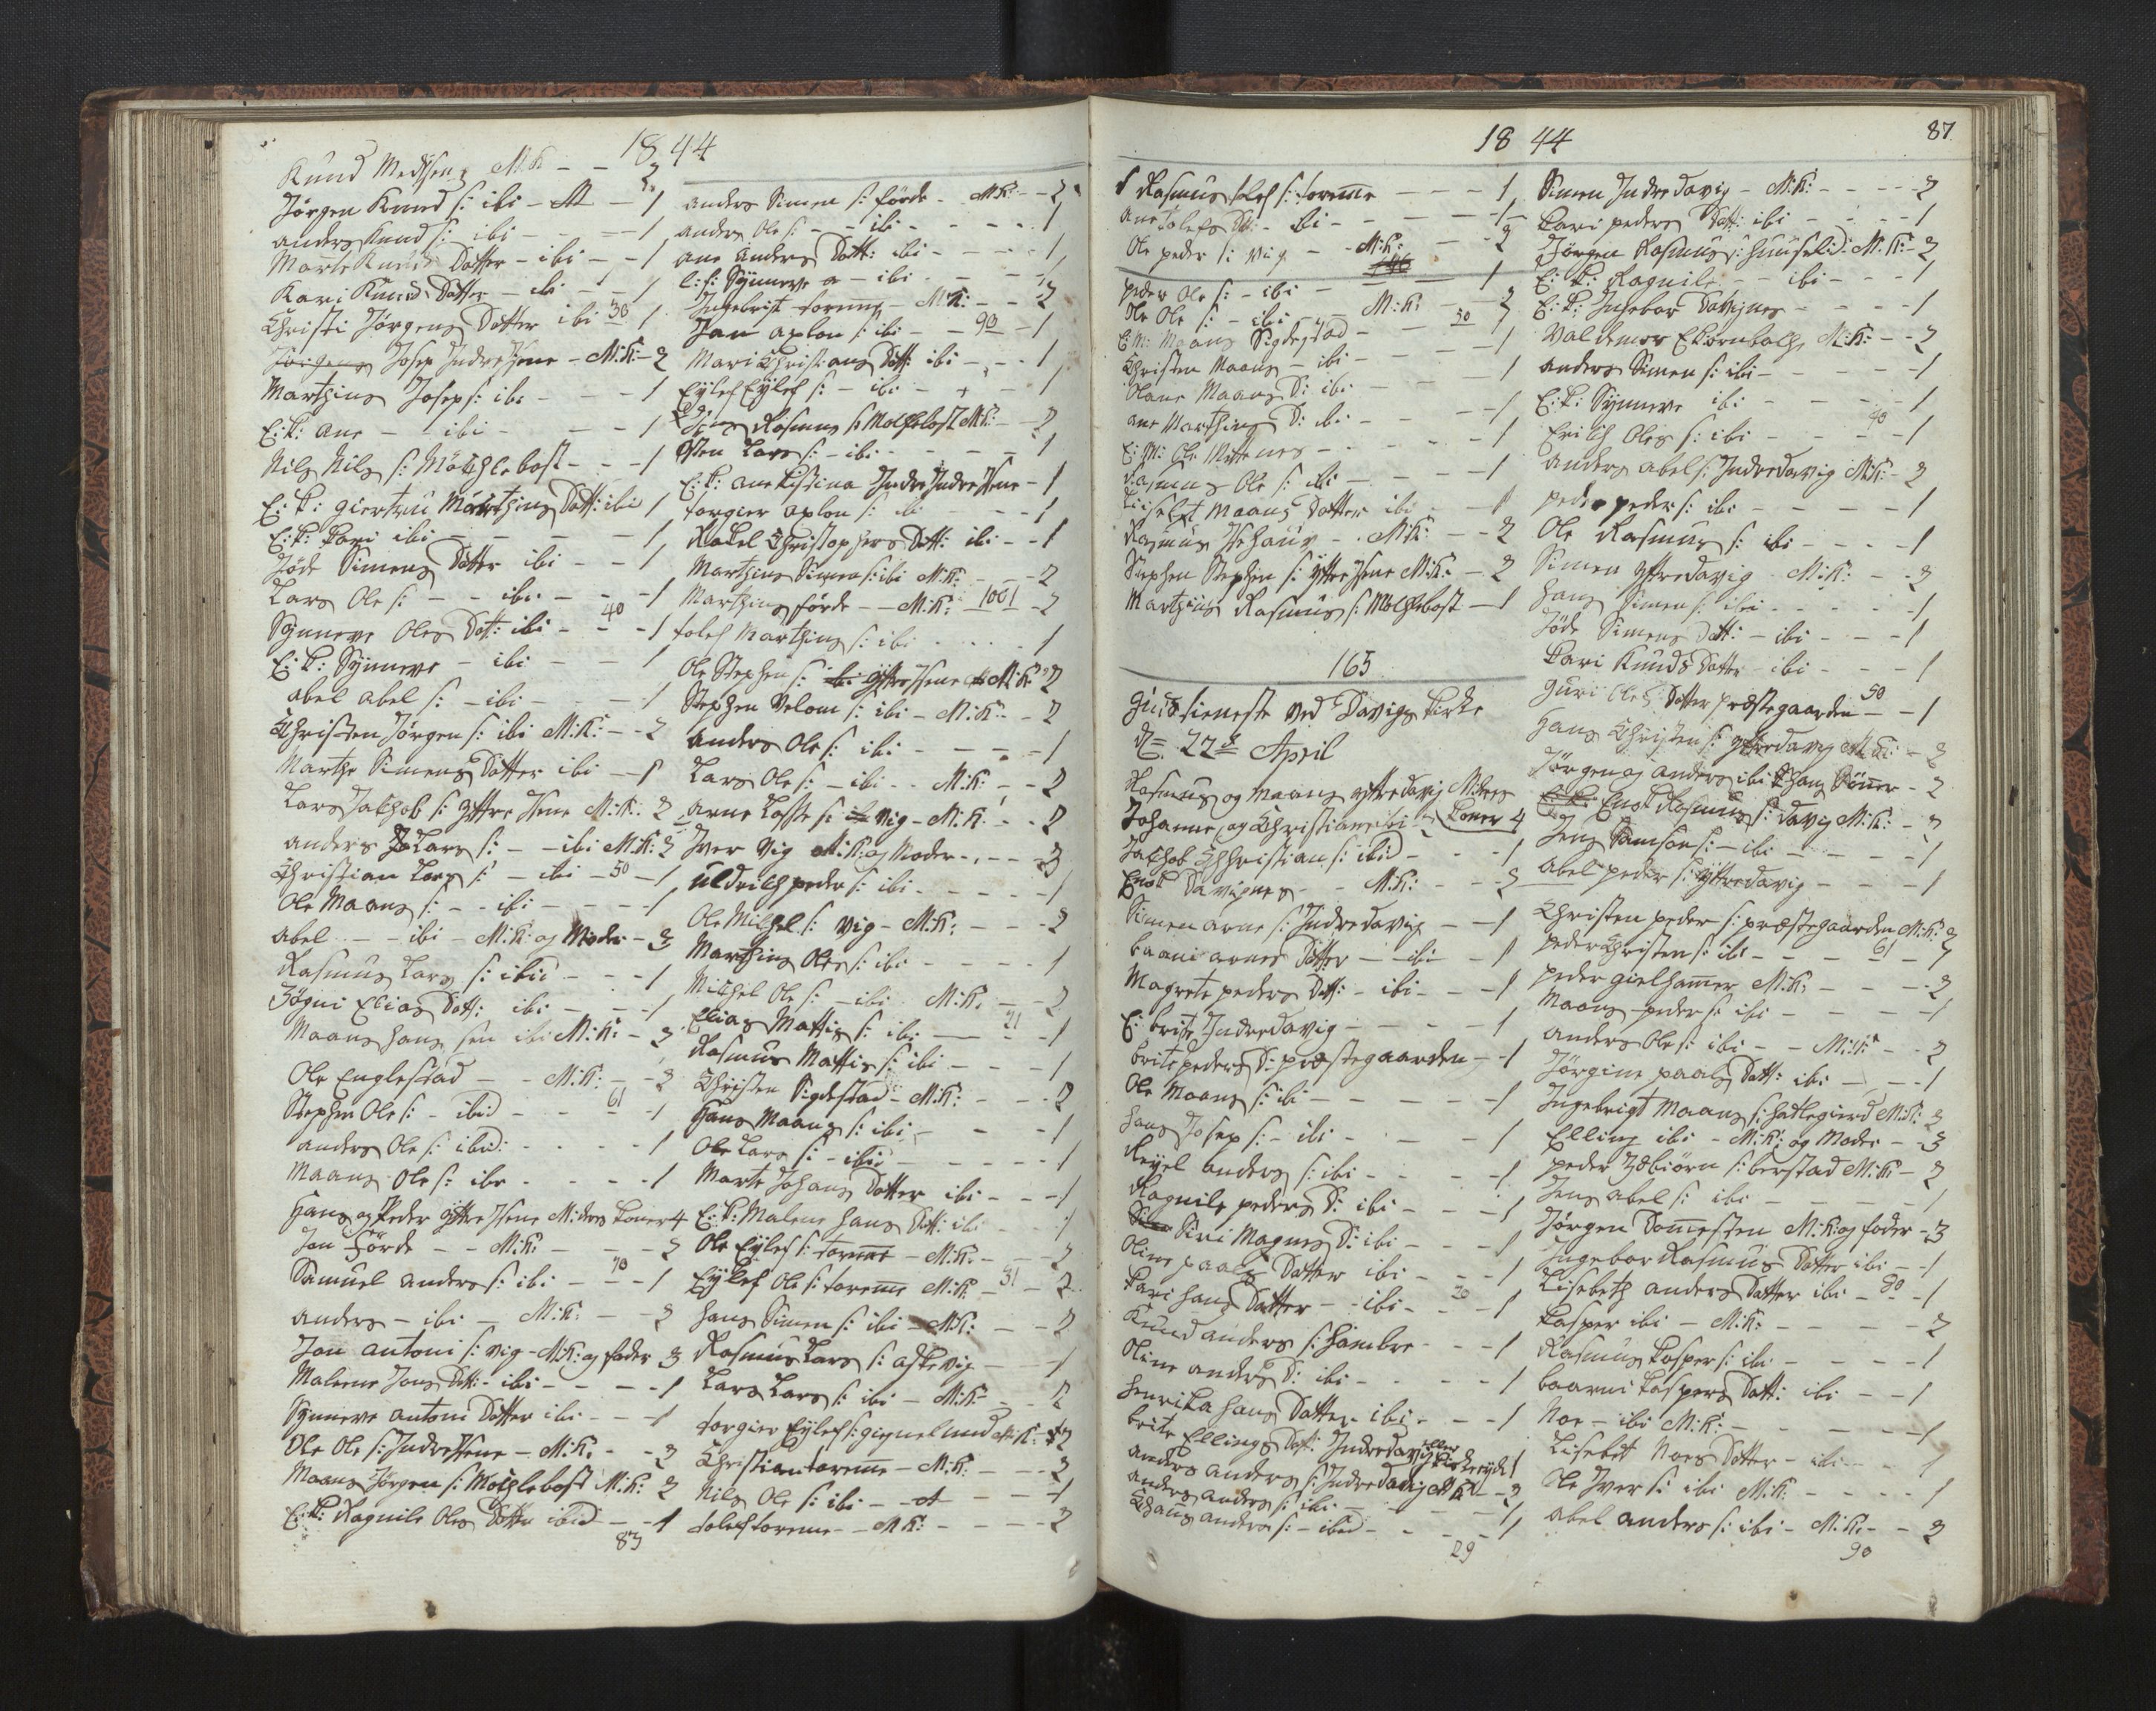 1844
Knud Madsen M.K. - - 2
Jörgen Knud s: ibi - M - 1
anders Knud s: ibi - - - 1
Marte Knuds Datter - ibi - - 1
Kari Knuds Datter - ibi - - 1
Christi Jörgens Datter ibi 30 1
Josep Indre Hene - M:K: - 2
Marthins Josep s: ibi - - - 1
E: K: Ane - - ibi - - - 1
Nils Nils s: Möchlebost - - - 1
E: K: giertru Marthins Datt: ibi 1
E: K: Kari ibi - - - - 1
Jöde Simens Datter ibi - - 1
Lars Ole s: - - ibi - - - 1
Synneve Oles Dat: ibi - 40 - 1
E: K: Synneve - ibi - - 1
abel abel s: - ibi - - - 1
Christen Jörgen s: ibi M:K: - - 2
Marthe Simens Datter ibi - - 1
Lars Jakhob s: Yttre Hene M:K: 2
anders Lars s: - - ibi M:K: 2
Christian Lars s: - ibi - 50 - 1
Ole Maans s: - - ibi - - - 1
abel - - ibi - M:K: og Moder - 3
Rasmus Lars s: ibid - - - 1
Jögni Elias Datt: ibi - - - 1
Maans hans sen ibi M:K: - 2
Ole Englestad - - M:K: - - 2
Stephen Ole s: - ibid - - 61 - 1
anders Ole s: ibid: - - - - 1
Maans Ole s: ibi - - - - 1
Hans og Peder Yttre Hene M: deres Koner 4
Jon Förde - - M:K: - - - 2
Samuel anders s: ibi - - 70 - 1
anders - ibi - M:K: - - 2
Jon antoni s: vig - M:K: og fader 3
Malene Jons Datt: - ibi - - - - 1
Synneve antoni Datter ibi - - - 1
Ole Ole s: Indre Hene - M:K: - - 2
Maans Jörgen s: Möchlebost M:K: 2
E: K: Ragnile Oles Datter ibid - - 1
83
anders Simen s: förde - M:K: - - 2
anders Ole s: - - ibi - - - - 1
ane anders Datt: ibi - - - - 1
Synneve a - ibi - - - - 1
Ingebrit torenes - M:K: - - 2
Jan aplon s: ibi - - 90 - 1
Mari Christians Datt: ibi - - - 1
Eÿlef Eÿlef s: - ibi - - - 1
Rasmus s: Möchlebost M:K: - - 2
Sten Lars s: - ibi - - - - 1
E: K: ane Indre Hene - 1
torgier aplon s: ibi - - - 1
Rakel Christophers Datt: ibi - - 1
Marthins Simen s: ibi M:K: - - - 2
Marthins förde - - M:K: 1001 - 2
tolef Marthins s: ibi - - - - 1
Ole Stephen s: yttre Hene M:K: 2
Stephen Velom s: ibi - M:K: - - 2
anders Ole s: ibi - - - - - 1
Lars Ole s: - ibi - - M:K: - - 2
arne Lasse s: vig - M:K: - - 2
Iver Vig M:K: og Moder - - - - 3
uldrich peder s: ibi - - - - - 1
Ole Michel s: vig - M:K: - - - 2
Marthins Ole s: ibi - - - - 1
Michel Ole s: - ibi M:K: - - 2
Elias Mattis s: ibi - - 21 - 1
Rasmus Mattis s: ibi - - - 1
Christen Sigdestad - M:K: - - - 2
Hans Maans s: ibi - - - 1
Ole Lars s: - ibid - - - - 1
Marte Johans Datter ibi - - - 1
E: K: Malene hans Datt: ibi - - 1
Ole Eÿlef s: torenes - M:K: - - 2
Eÿlef Ole s: torenes M:K: - 31 - 2
hans Simen s: ibi - M:K: - - 2
Rasmus Lars s: askevig - - - 1
Lars Lars s: ibi - M:K: - - 2
torgier Eÿlef s: M:K: 2
Christian torenes - M:K: - - - 2
Nils Ole s: ibi - - - - - 1
tolef torenes - - M:K: - - - - 2
1844
87
Rasmus tolef s: torenes - - - 1
ane tolefs D: - ibi - - - - 1
Ole peder s: vig - - M:K: - - 2
peder Ole s: - ibi - - - - 1
Ole Ole s: - ibi - - M:K: - - 2
E: K: Maans Sigdestad - - 50 - 1
Christen Maans - ibi - - - - 1
Olave Maans D: ibi - - - 1
ane Marthins D: ibi - - - - 1
E: M: Ole - - - - 1
Rasmus Ole s: ibi - - - - 1
Liisebet Maans Datter ibi - - 1
Rasmus - M:K: - - 2
Stephen Stephen s: yttre Hene M:K: - 2
Marthins Rasmus s: Möchlebost - 1
165
Gudstieneste ved Davigs Kirke
d= 22de April
Rasmus og Maans yttredavig M: deres
Johanne og Christiane ibi Koner 4
Jakhob Christian s: ibid - - - 1
Enok Davignes - - M:K: - - 2
Simen arne s: Indredavig - - 1
baarni arnes Datter - - ibi - 1
Magrete peders Datt: - ibi - - - 1
E: brite Indredavig - - - - 1
brite peders D: præstegaarden - - 1
Ole Maans s: ibi - - - - - 1
hans Josep s: - ibi - - - - 1
Reÿel anders s: ibi - - - - 1
Ragnile peders D: ibi - - - 1
Siri Magnes D: ibi - - - 1
Oline paals Datter ibi - - - 1
Kari hans Datter - - ibi - 20 - 1
Knud anders s: hambre - - - 1
Oline anders D: ibi - - - - 1
henrika hans Datter - ibi - - - 1
brite Ellings Datt: Indredavig eller 1
anders anders s: Indredavig M:K: - - 2
anders anders s: ibi - - - - 1
Chans anders s: - ibid - - - - 1
29
Simen Indredavig - M:K: - - - - 2
Kari peders Datt: ibi - - - - 1
Jörgen Rasmus s: huuselid: M:K: - 2
E: K: Ragnile - - ibi - - - 1
E: K: Ingebor Davignes - - - - 1
Valdemor M:K: - - 2
anders Simen s: ibi - - - - - 1
E: K: Synneve ibi - - - - 1
Erilch Oles s: ibi - - - 40 - 1
anders abel s: Indredavig M:K: - 2
peder peder s: ibi - - - - - 1
Ole Rasmus s: ibi - - - - 1
Simen yttredavig M:K: - - 2
hans Simen s: ibi - - - - - 1
Jöde Simens Datt: - ibi - - - 1
Kari Knuds Datter - ibi - - - 1
Guri Oles Datter Præstegaarden - 50 - 1
hans Christen s: yttredavig M:K: - 2
Jörgen og anders ibi - 2
Enok Rasmus s: davig M:K: - 2
Jens Samson s: - ibi - - - - 1
abel peder s: yttredavig - - - 1
Christen peder s: præstegaarden M:K: 2
peder Christen s: ibi - - - 61 - 1
peder gielhammer M:K: - - - - 2
Maans peder s: ibi - - - - 1
anders Ole s: ibi - - M:K: - - 2
Jörgine paals Datt: ibi - - - 1
Ingebrigt Maans s: hatlegierd M:K: 2
Elling ibi - M:K: og Moder - - 3
peder s: berstad M:K: - 2
Jens abel s: ibi - - - - - 1
Jörgen Domesten M:K: og fader - 3
Ingebor Rasmus Datter ibi - - 1
Lisebeth anders Datter ibi - 80 - 1
Kasper ibi - M:K: - - - - - 2
Rasmus Kasper s: ibi - - - - 1
baarni Kaspers Datt: ibi - - 1
Noe - ibi M:K: - - - - - 1
Lisebet Noes Datter - ibi - - - 1
Ole Iver s: ibi M:K: - - - - 1
abel anders s: ibi - M:K: - - 2
90